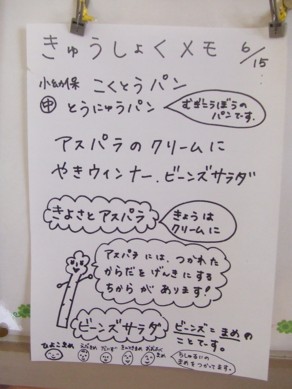 きゅうしょくメモ 6/15
小幼保 こくとうパン
中 とうにゅうパン
むぎごうぼうの
パンです。
アスパラのクリームに
やきウィンナー、ビーンズサラダ
きよさとアスパラ
きょうは
クリームに
アスパラには、つかれた
からだをげんきにする
ちからがあります!
ビーンズサラダ
ビーンズ=まめの
ことです。
ひよこまめ
まめをつかってます。